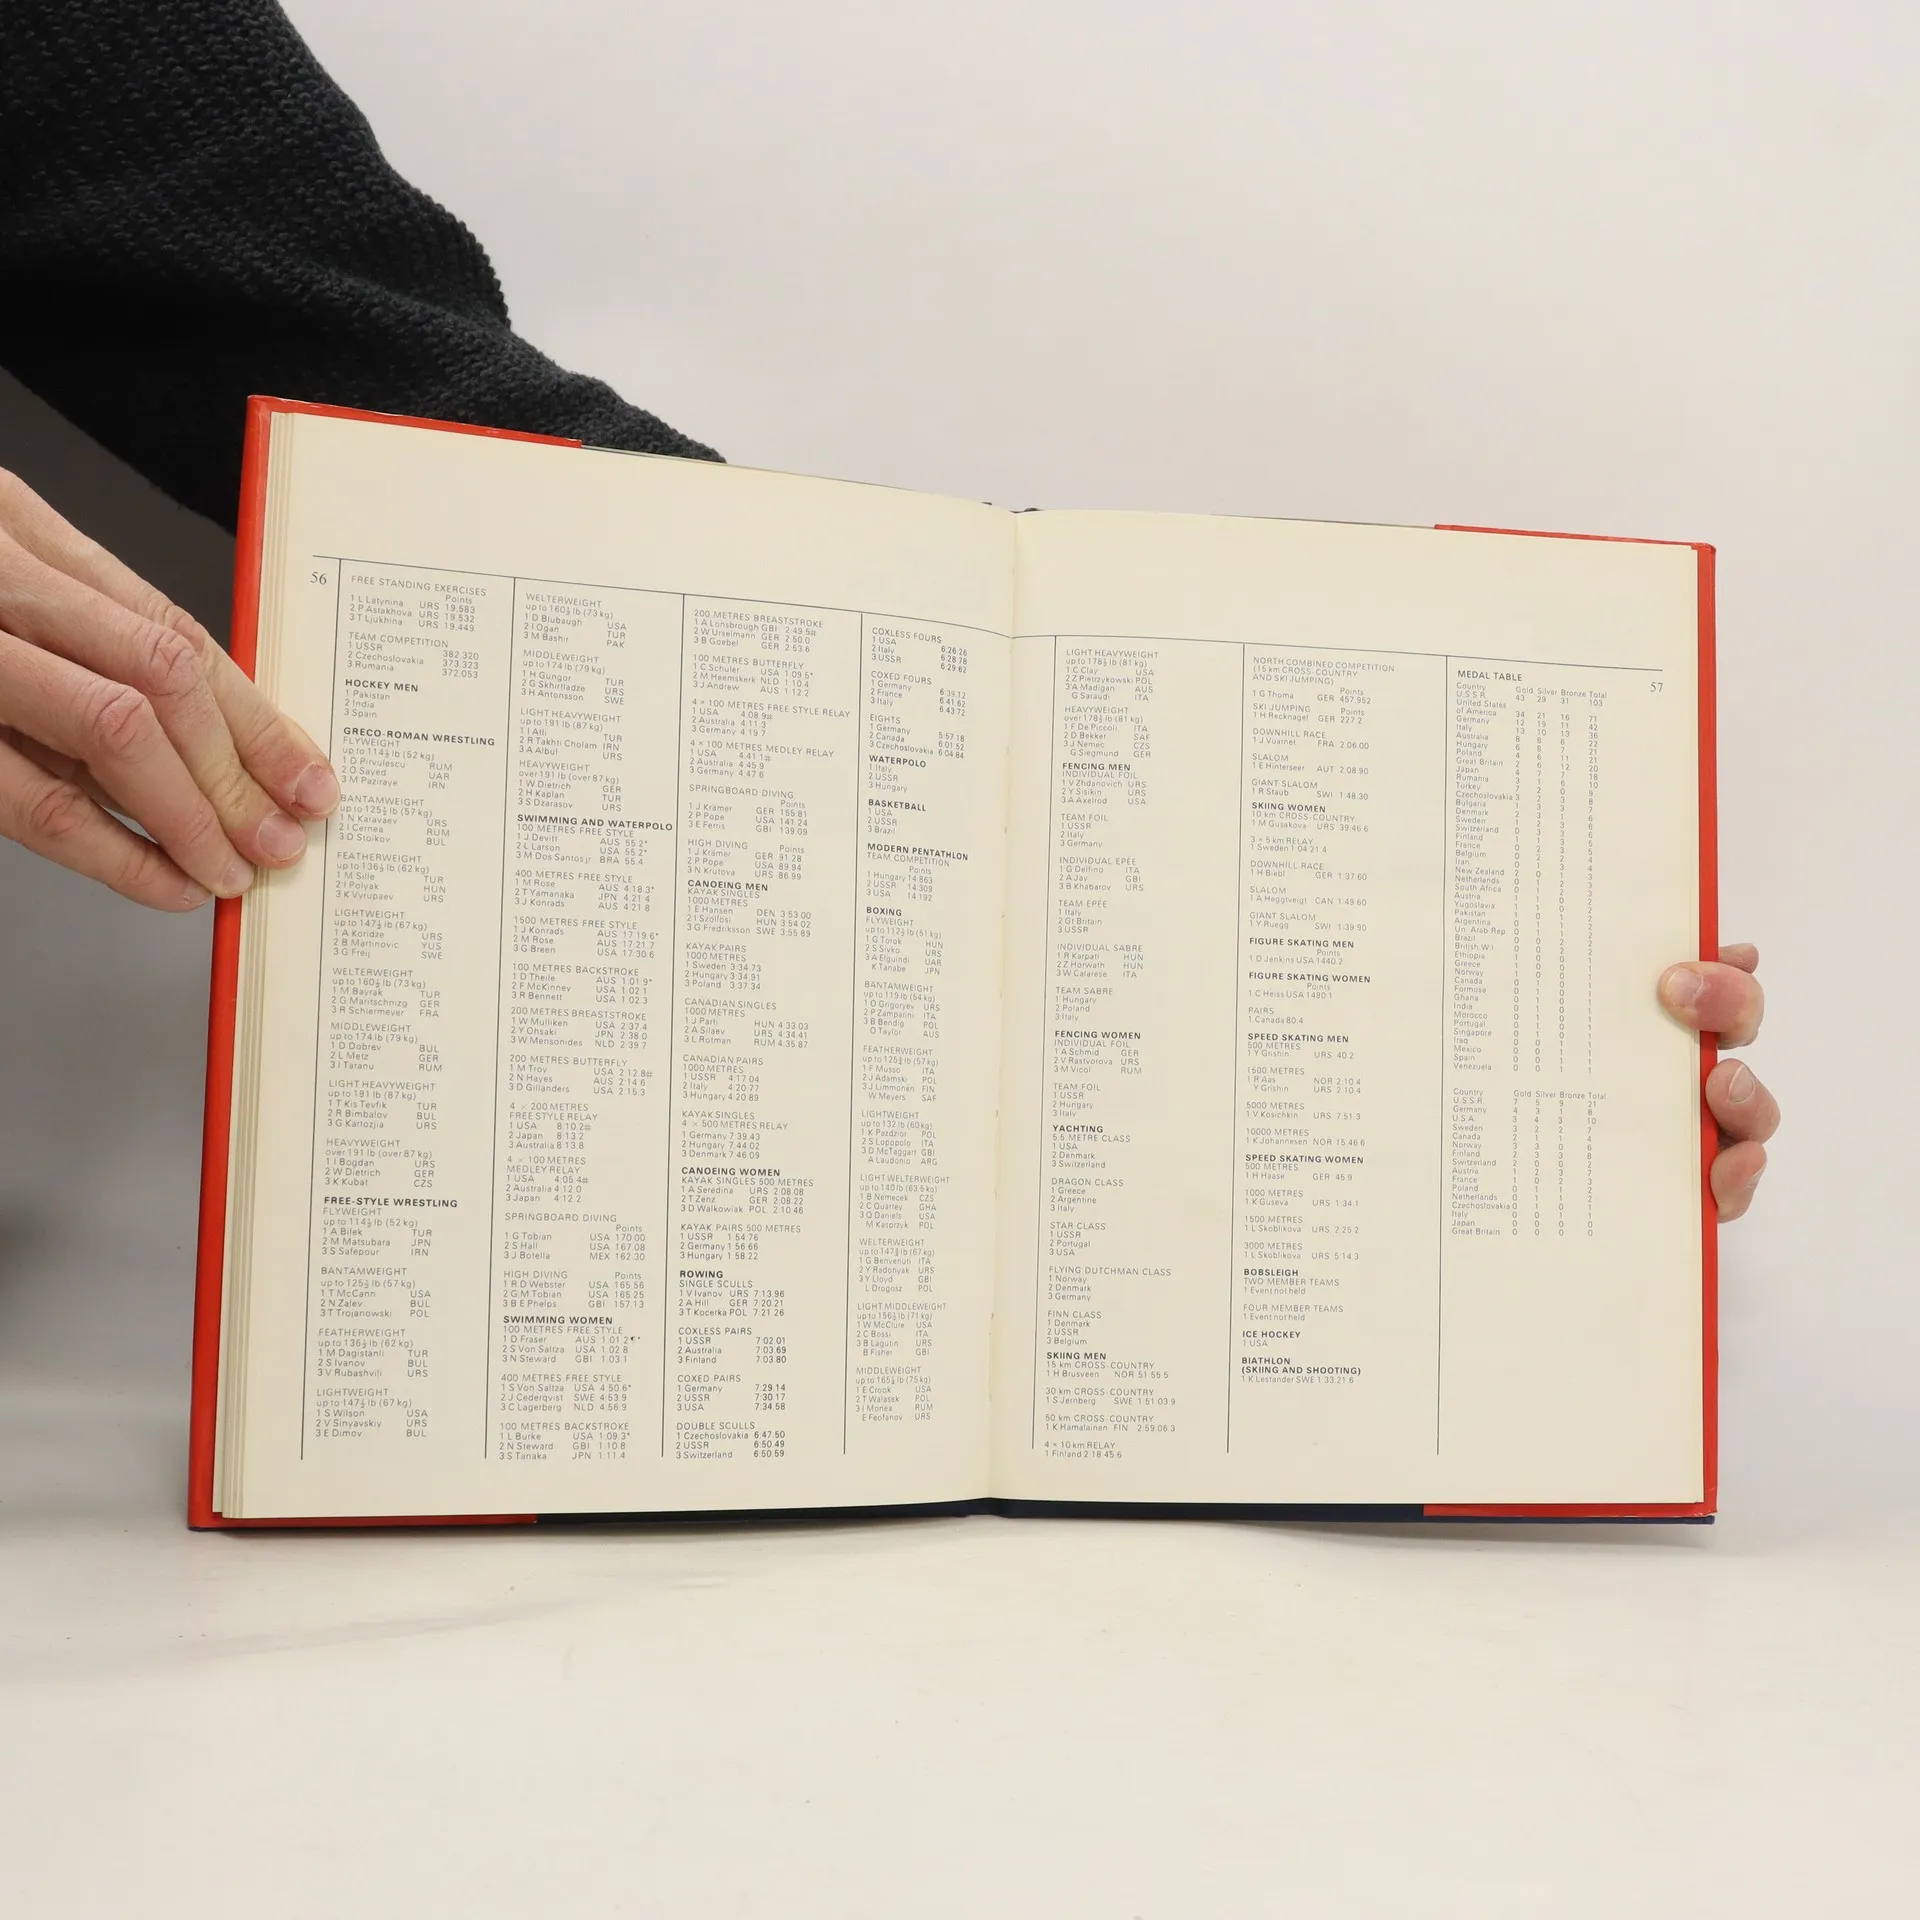 56
FREE STANDING EXERCISES
Points
1 L Latynina URS 19.583
2 P Astakhova URS 19.532
3 T Ljukhina URS 19.449
TEAM COMPETITION
1 USSR 382 320
2 Czechoslovakia 373 323
3 Rumania 372.053
HOCKEY MEN
1 Pakistan
2 India
3 Spain
GRECO-ROMAN WRESTLING
FLYWEIGHT
up to 114½ lb (52 kg)
1 D Pirvulescu RUM
2 O Sayed UAR
3 M Paziraye IRN
BANTAMWEIGHT
up to 125½ lb (57 kg)
1 N Karavaev URS
2 I Cernea RUM
3 D Stoikov BUL
FEATHERWEIGHT
up to 136½ lb (62 kg)
1 M Sille TUR
2 I Polyak HUN
3 K Vyrupaev URS
LIGHTWEIGHT
up to 147½ lb (67 kg)
1 A Koridze URS
2 B Martinovic YUS
3 G Freij SWE
WELTERWEIGHT
up to 160½ lb (73 kg)
1 M Bayrak TUR
2 G Maritschnigg GER
3 R Schiermeyer FRA
MIDDLEWEIGHT
up to 174 lb (79 kg)
1 D Dobrev BUL
2 L Metz GER
3 I Taranu RUM
LIGHT HEAVYWEIGHT
up to 191 lb (87 kg)
1 T Kis Tevfik TUR
2 R Bimbalov BUL
3 G Kartozjia URS
HEAVYWEIGHT
over 191 lb (over 87 kg)
1 I Bogdan URS
2 W Dietrich GER
3 K Kubat CZS
FREE-STYLE WRESTLING
FLYWEIGHT
up to 114½ lb (52 kg)
1 A Bilek TUR
2 M Matsubara JPN
3 S Safepour IRN
BANTAMWEIGHT
up to 125½ lb (57 kg)
1 T McCann USA
2 N Zalev BUL
3 T Trojanowski POL
FEATHERWEIGHT
up to 136½ lb (62 kg)
1 M Dagistanli TUR
2 S Ivanov BUL
3 V Rubashvili URS
LIGHTWEIGHT
up to 147½ lb (67 kg)
1 S Wilson USA
2 V Sinyavskiy URS
3 E Dimov BUL
WELTERWEIGHT
up to 160½ lb (73 kg)
1 D Blubaugh USA
2 I Ogan TUR
3 M Bashir PAK
MIDDLEWEIGHT
up to 174 lb (79 kg)
1 H Gungor TUR
2 G Skhirtladze URS
3 H Antonsson SWE
LIGHT HEAVYWEIGHT
up to 191 lb (87 kg)
1 I Atli TUR
2 R Takhti Cholam IRN
3 A Albul URS
HEAVYWEIGHT
over 191 lb (over 87 kg)
1 W Dietrich GER
2 H Kaplan TUR
3 S Dzarasov URS
SWIMMING AND WATERPOLO
100 METRES FREE STYLE
1 J Devitt AUS 55.2*
2 L Larson USA 55.2*
3 M Dos Santos jr BRA 55.4
400 METRES FREE STYLE
1 M Rose AUS 4:18.3*
2 T Yamanaka JPN 4:21.4
3 J Konrads AUS 4:21.8
1500 METRES FREE STYLE
1 J Konrads AUS 17:19.6*
2 M Rose AUS 17:21.7
3 G Breen USA 17:30.6
100 METRES BACKSTROKE
1 D Theile AUS 1:01.9*
2 F McKinney USA 1:02.1
3 R Bennett USA 1:02.3
200 METRES BREASTSTROKE
1 W Mulliken USA 2:37.4
2 Y Ohsaki JPN 2:38.0
3 W Mensonides NLD 2:39.7
200 METRES BUTTERFLY
1 M Troy USA 2:12.8#
2 N Hayes AUS 2:14.6
3 D Gillanders USA 2:15.3
4 × 200 METRES
FREE STYLE RELAY
1 USA 8:10.2#
2 Japan 8:13.2
3 Australia 8:13.8
4 × 100 METRES
MEDLEY RELAY
1 USA 4:05.4#
2 Australia 4:12.0
3 Japan 4:12.2
SPRINGBOARD DIVING
Points
1 G Tobian USA 170.00
2 S Hall USA 167.08
3 J Botella MEX 162.30
HIGH DIVING Points
1 R D Webster USA 165.56
2 G M Tobian USA 165.25
3 B E Phelps GBI 157.13
SWIMMING WOMEN
100 METRES FREE STYLE
1 D Fraser AUS 1:01.2
2 S Von Saltza USA 1:02.8
3 N Steward GBI 1:03.1
400 METRES FREE STYLE
1 S Von Saltza USA 4:50.6*
2 J Cederqvist SWE 4:53.9
3 C Lagerberg NLD 4:56.9
100 METRES BACKSTROKE
1 L Burke USA 1:09.3*
2 N Steward GBI 1:10.8
3 S Tanaka JPN 1:11.4
200 METRES BREASTSTROKE
1 A Lonsbrough GBI 2:49.5#
2 W Urselmann GER 2:50.0
3 B Goebel GER 2:53.6
100 METRES BUTTERFLY
1 C Schuler USA 1:09.5*
2 M Heemskerk NLD 1:10.4
3 J Andrew AUS 1:12.2
4 × 100 METRES FREE STYLE RELAY
1 USA 4:08.9#
2 Australia 4:11.3
3 Germany 4:19.7
4 × 100 METRES MEDLEY RELAY
1 USA 4:41.1#
2 Australia 4:45.9
3 Germany 4:47.6
SPRINGBOARD DIVING
Points
1 J Krämer GER 155.81
2 P Pope USA 141.24
3 E Ferris GBI 139.09
HIGH DIVING Points
1 J Krämer GER 91.28
2 P Pope USA 89.94
3 N Krutova URS 86.99
CANOEING MEN
KAYAK SINGLES
1000 METRES
1 E Hansen DEN 3:53.00
2 I Szollosi HUN 3:54.02
3 G Fredriksson SWE 3:55.89
KAYAK PAIRS
1000 METRES
1 Sweden 3:34.73
2 Hungary 3:34.91
3 Poland 3:37.34
CANADIAN SINGLES
1000 METRES
1 J Parti HUN 4:33.03
2 A Silaev URS 4:34.41
3 L Rotman RUM 4:35.87
CANADIAN PAIRS
1000 METRES
1 USSR 4:17.04
2 Italy 4:20.77
3 Hungary 4:20.89
KAYAK SINGLES
4 × 500 METRES RELAY
1 Germany 7:39.43
2 Hungary 7:44.02
3 Denmark 7:46.09
CANOEING WOMEN
KAYAK SINGLES 500 METRES
1 A Seredina URS 2:08.08
2 T Zenz GER 2:08.22
3 D Walkowiak POL 2:10.46
KAYAK PAIRS 500 METRES
1 USSR 1:54.76
2 Germany 1:56.66
3 Hungary 1:58.22
ROWING
SINGLE SCULLS
1 V Ivanov URS 7:13.96
2 A Hill GER 7:20.21
3 T Kocerka POL 7:21.26
COXLESS PAIRS
1 USSR 7:02.01
2 Australia 7:03.69
3 Finland 7:03.80
COXED PAIRS
1 Germany 7:29.14
2 USSR 7:30.17
3 USA 7:34.58
DOUBLE SCULLS
1 Czechoslovakia 6:47.50
2 USSR 6:50.49
3 Switzerland 6:50.59
COXLESS FOURS
1 USA 6:26.26
2 Italy 6:28.78
3 USSR 6:29.62
COXED FOURS
1 Germany 6:39.12
2 France 6:41.62
3 Italy 6:43.72
EIGHTS
1 Germany 5:57.18
2 Canada 6:01.52
3 Czechoslovakia 6:04.84
WATERPOLO
1 Italy
2 USSR
3 Hungary
BASKETBALL
1 USA
2 USSR
3 Brazil
MODERN PENTATHLON
TEAM COMPETITION
Points
1 Hungary 14.863
2 USSR 14.309
3 USA 14.192
BOXING
FLYWEIGHT
up to 112½ lb (51 kg)
1 G Torok HUN
2 S Sivko URS
3 A Elguindi UAR
K Tanabe JPN
BANTAMWEIGHT
up to 119 lb (54 kg)
1 O Grigoryev URS
2 P Zamparini ITA
3 B Bendig POL
O Taylor AUS
FEATHERWEIGHT
up to 125½ lb (57 kg)
1 F Musso ITA
2 J Adamski POL
3 J Limmonen FIN
W Meyers SAF
LIGHTWEIGHT
up to 132 lb (60 kg)
1 K Pazdzior POL
2 S Lopopolo ITA
3 D McTaggart GBI
A Laudonio ARG
LIGHT WELTERWEIGHT
up to 140 lb (63.5 kg)
1 B Nemecek CZS
2 C Quartey GHA
3 Q Daniels USA
M Kasprzyk POL
WELTERWEIGHT
up to 147½ lb (67 kg)
1 G Benvenuti ITA
2 Y Radonyak URS
3 Y Lloyd GBI
L Drogosz POL
LIGHT MIDDLEWEIGHT
up to 156½ lb (71 kg)
1 W McClure USA
2 C Bossi ITA
3 B Lagutin URS
B Fisher GBI
MIDDLEWEIGHT
up to 165½ lb (75 kg)
1 E Crook USA
2 T Walasek POL
3 I Monea RUM
E Feofanov URS
LIGHT HEAVYWEIGHT
up to 178½ lb (81 kg)
1 C Clay USA
2 Z Pietrzykowski POL
3 A Madigan AUS
G Saraudi ITA
HEAVYWEIGHT
over 178½ lb (81 kg)
1 F De Piccoli ITA
2 D Bekker SAF
3 J Nemec CZS
G Siegmund GER
FENCING MEN
INDIVIDUAL FOIL
1 V Zhdanovich URS
2 Y Sisikin URS
3 A Axelrod USA
TEAM FOIL
1 USSR
2 Italy
3 Germany
INDIVIDUAL EPÉE
1 G Delfino ITA
2 A Jay GBI
3 B Khabarov URS
TEAM EPÉE
1 Italy
2 Gt Britain
3 USSR
INDIVIDUAL SABRE
1 R Karpati HUN
2 Z Horwath HUN
3 W Calarese ITA
TEAM SABRE
1 Hungary
2 Poland
3 Italy
FENCING WOMEN
INDIVIDUAL FOIL
1 A Schmid GER
2 V Rastvorova URS
3 M Vicol RUM
TEAM FOIL
1 USSR
2 Hungary
3 Italy
YACHTING
5.5 METRE CLASS
1 USA
2 Denmark
3 Switzerland
DRAGON CLASS
1 Greece
2 Argentine
3 Italy
STAR CLASS
1 USSR
2 Portugal
3 USA
FLYING DUTCHMAN CLASS
1 Norway
2 Denmark
3 Germany
FINN CLASS
1 Denmark
2 USSR
3 Belgium
SKIING MEN
15 km CROSS-COUNTRY
1 H Brusveen NOR 51:55.5
30 km CROSS-COUNTRY
1 S Jernberg SWE 1:51:03.9
50 km CROSS-COUNTRY
1 K Hamalainen FIN 2:59:06.3
4 × 10 km RELAY
1 Finland 2:18:45.6
NORTH COMBINED COMPETITION
(15 km CROSS-COUNTRY
AND SKI JUMPING)
Points
1 G Thoma GER 457.952
SKI JUMPING Points
1 H Recknagel GER 227.2
DOWNHILL RACE
1 J Vuarnet FRA 2:06.00
SLALOM
1 E Hinterseer AUT 2:08.90
GIANT SLALOM
1 R Staub SWI 1:48.30
SKIING WOMEN
10 km CROSS-COUNTRY
1 M Gusakova URS 39:46.6
3 × 5 km RELAY
1 Sweden 1:04:21.4
DOWNHILL RACE
1 H Biebl GER 1:37.60
SLALOM
1 A Heggtveigt CAN 1:49.60
GIANT SLALOM
1 Y Ruegg SWI 1:39.90
FIGURE SKATING MEN
Points
1 D Jenkins USA 1440.2
FIGURE SKATING WOMEN
Points
1 C Heiss USA 1490.1
PAIRS
1 Canada 80.4
SPEED SKATING MEN
500 METRES
1 Y Grishin URS 40.2
1500 METRES
1 R Aas NOR 2:10.4
Y Grishin URS 2:10.4
5000 METRES
1 V Kosichkin URS 7:51.3
10000 METRES
1 K Johannesen NOR 15:46.6
SPEED SKATING WOMEN
500 METRES
1 H Haase GER 45.9
1000 METRES
1 K Guseva URS 1:34.1
1500 METRES
1 L Skoblikova URS 2:25.2
3000 METRES
1 L Skoblikova URS 5:14.3
BOBSLEIGH
TWO MEMBER TEAMS
1 Event not held
FOUR MEMBER TEAMS
1 Event not held
ICE HOCKEY
1 USA
BIATHLON
(SKIING AND SHOOTING)
1 K Lestander SWE 1:33:21.6
57
MEDAL TABLE
Country Gold Silver Bronze Total
U.S.S.R 43 29 31 103
United States
of America 34 21 16 71
Germany 12 19 11 42
Italy 13 10 13 36
Australia 8 8 6 22
Hungary 6 8 7 21
Poland 4 6 11 21
Great Britain 2 6 12 20
Japan 4 7 7 18
Rumania 3 1 6 10
Turkey 7 2 0 9
Czechoslovakia 3 2 3 8
Bulgaria 1 3 3 7
Denmark 2 3 1 6
Sweden 1 2 3 6
Switzerland 0 3 3 6
Finland 1 1 3 5
France 0 2 3 5
Belgium 0 2 2 4
Iran 0 1 3 4
New Zealand 2 0 1 3
Netherlands 0 1 2 3
South Africa 0 1 2 3
Austria 1 1 0 2
Yugoslavia 1 1 0 2
Pakistan 1 0 1 2
Argentina 0 1 1 2
Un. Arab Rep. 0 1 1 2
Brazil 0 0 2 2
British W.I 0 0 2 2
Ethiopia 1 0 0 1
Greece 1 0 0 1
Norway 1 0 0 1
Canada 0 1 0 1
Formosa 0 1 0 1
Ghana 0 1 0 1
India 0 1 0 1
Morocco 0 1 0 1
Portugal 0 1 0 1
Singapore 0 1 0 1
Iraq 0 0 1 1
Mexico 0 0 1 1
Spain 0 0 1 1
Venezuela 0 0 1 1
Country Gold Silver Bronze Total
U.S.S.R 7 5 9 21
Germany 4 3 1 8
U.S.A. 3 4 3 10
Sweden 3 2 2 7
Canada 2 1 1 4
Norway 3 3 0 6
Finland 2 3 3 8
Switzerland 2 0 0 2
Austria 1 2 3 7
France 1 0 2 3
Poland 0 1 1 2
Netherlands 0 1 1 2
Czechoslovakia 0 1 0 1
Italy 0 0 1 1
Japan 0 0 0 0
Great Britain 0 0 0 0